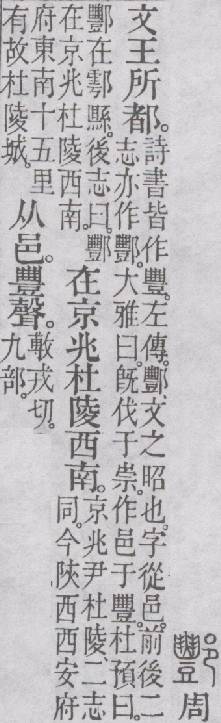 酆周
文王所都。詩書皆作豐。左傳。酆、文之昭也。字從邑。前後二
志亦作酆。大雅曰。旣伐于崇。作邑于豐。杜預曰。
酆在鄠縣。後志曰。酆
在京兆杜陵西南。在京兆杜陵西南。京兆尹杜陵、二志
同。今陝西西安府
府東南十五里
有故杜陵城。从邑。豐聲。敷戎切。
九部。